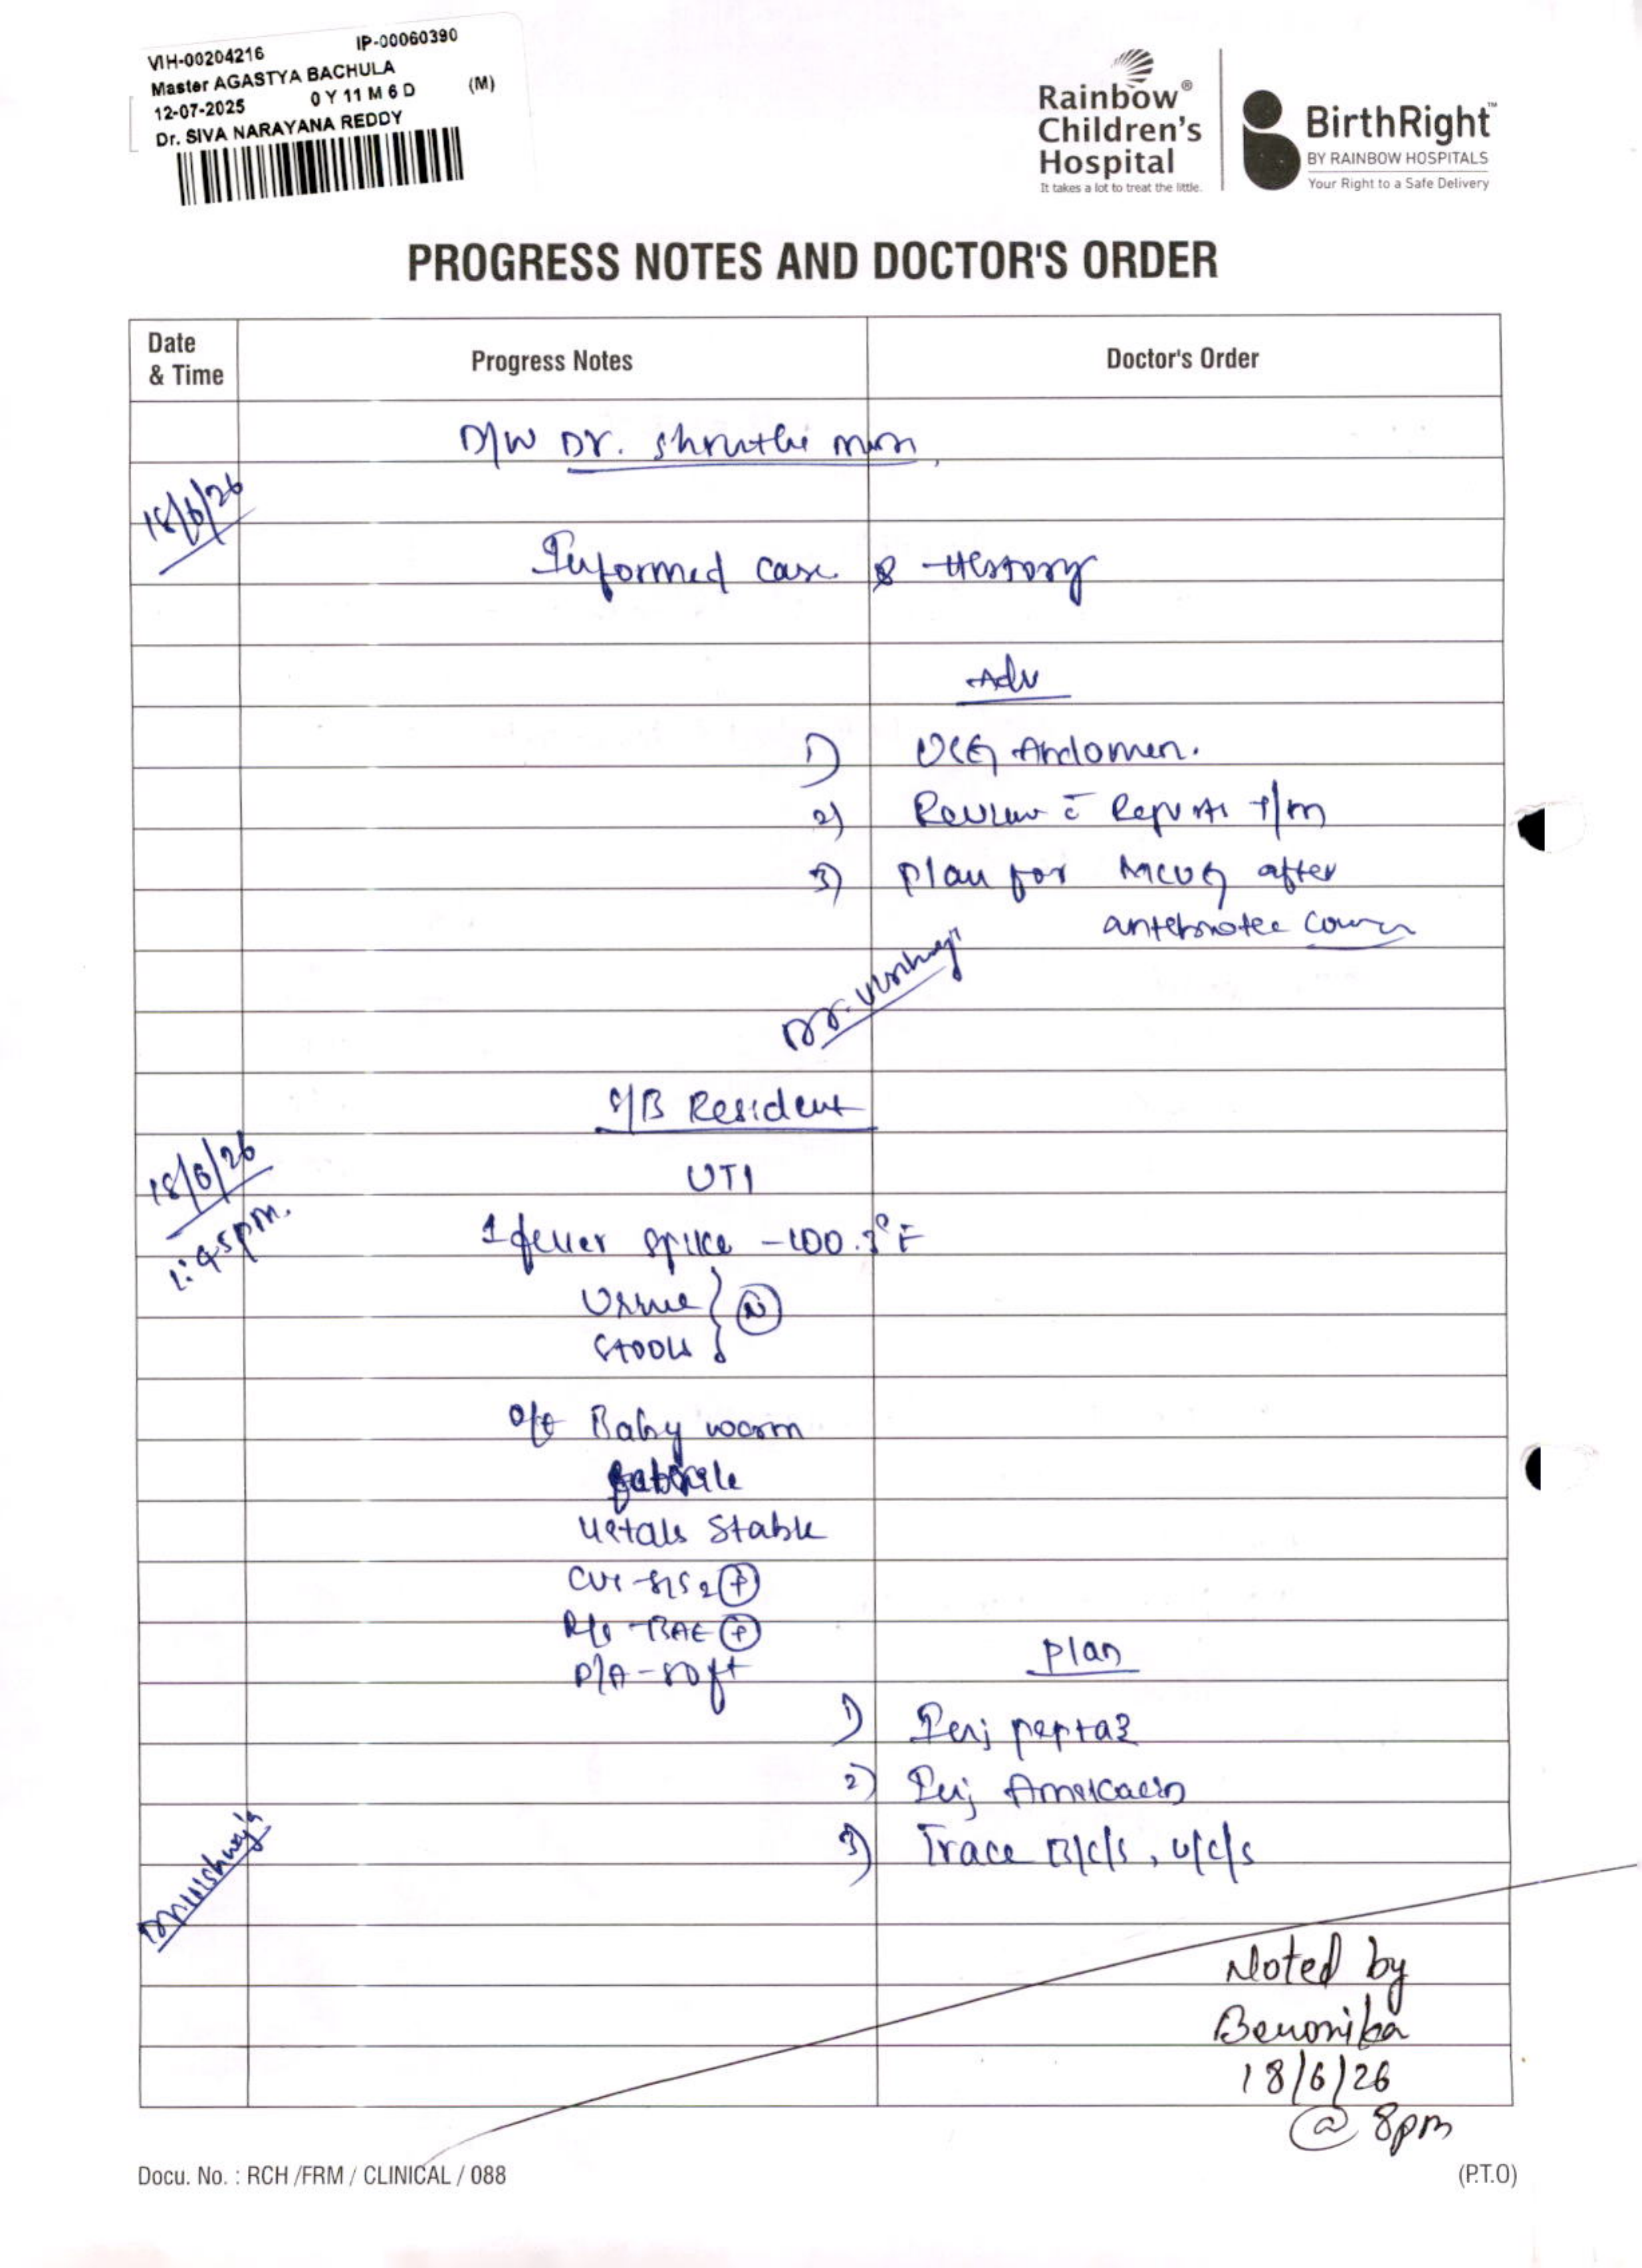 VIH-00204216 IP-00060390
Master AGASTYA BACHULA
12-07-2025 0 Y 11 M 6 D (M)
Dr. SIVA NARAYANA REDDY
Rainbow®
Children's
Hospital
It takes a lot to treat the little.
BirthRight™
BY RAINBOW HOSPITALS
Your Right to a Safe Delivery
PROGRESS NOTES AND DOCTOR'S ORDER
Date
& Time
Progress Notes
Doctor's Order
D/W Dr. Shruthi mam
18/6/26
Informed case & History
Adv
1) USG Abdomen.
2) Review c̄ Reports t/m
3) Plan for MCUG after
antibiotic course
S/B Resident
18/6/26
UTI
1 fever spike - 100.3°F
Urine
Stools } N
O/E Baby warm
febrile
Vitals Stable
CVS - S1S2 +
R/S - BAE +
P/A - soft
Plan
1) Inj peptaz
2) Inj Amikacin
3) Trace B/c/s, U/c/s
Noted by
18/6/26
@ 8pm
Docu. No. : RCH /FRM / CLINICAL / 088
(P.T.O)